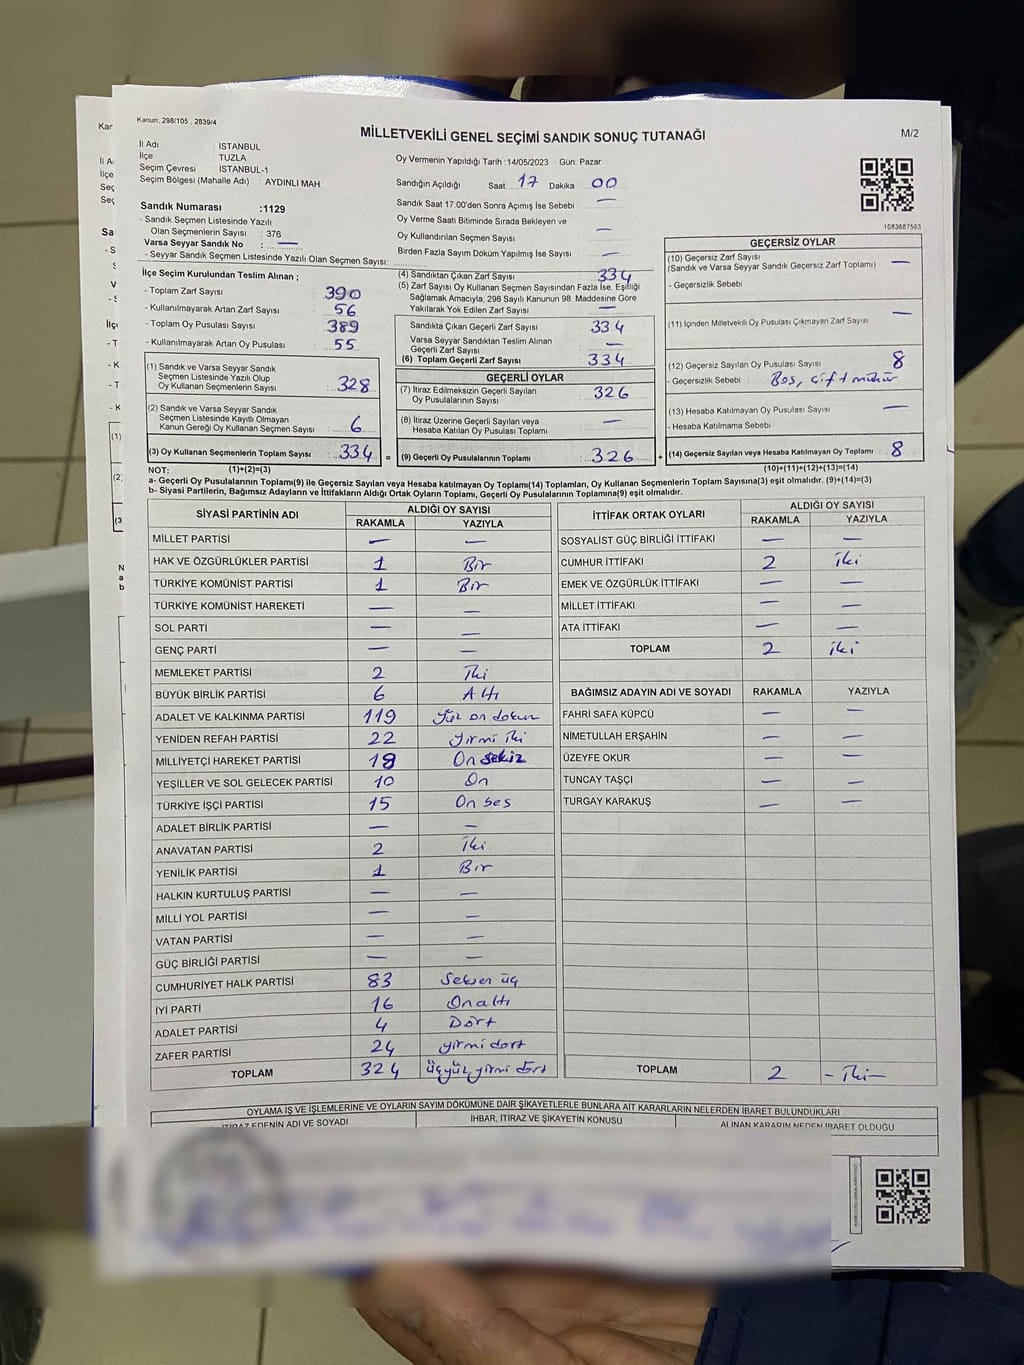 Kanun, 298/105 , 2839/4
MİLLETVEKİLİ GENEL SEÇİMİ SANDIK SONUÇ TUTANAĞI
M/2
İl Adı : İSTANBUL
İlçe : TUZLA
Seçim Çevresi : İSTANBUL-1
Seçim Bölgesi (Mahalle Adı) : AYDINLI MAH.
Oy Vermenin Yapıldığı Tarih :14/05/2023 Gün: Pazar
Sandığın Açıldığı Saat: 17 Dakika : 00
Sandık Saat 17.00'den Sonra Açımış İse Sebebi : —
Oy Verme Saati Bitiminde Sırada Bekleyen ve
Oy Kullandırılan Seçmen Sayısı : —
Birden Fazla Sayım Döküm Yapılmış İse Sayısı : —
1083687563
Sandık Numarası :1129
- Sandık Seçmen Listesinde Yazılı
Olan Seçmenlerin Sayısı : 376
Varsa Seyyar Sandık No : —
- Seyyar Sandık Seçmen Listesinde Yazılı Olan Seçmen Sayısı:
İlçe Seçim Kurulundan Teslim Alınan ;
- Toplam Zarf Sayısı : 390
- Kullanılmayarak Artan Zarf Sayısı : 56
- Toplam Oy Pusulası Sayısı : 389
- Kullanılmayarak Artan Oy Pusulası : 55
(1) Sandık ve Varsa Seyyar Sandık
Seçmen Listesinde Yazılı Olup
Oy Kullanan Seçmenlerin Sayısı : 328
(2) Sandık ve Varsa Seyyar Sandık
Seçmen Listesinde Kayıtlı Olmayan
Kanun Gereği Oy Kullanan Seçmen Sayısı : 6
(3) Oy Kullanan Seçmenlerin Toplam Sayısı : 334
(4) Sandıktan Çıkan Zarf Sayısı : 334
(5) Zarf Sayısı Oy Kullanan Seçmen Sayısından Fazla İse, Eşitliği
Sağlamak Amacıyla, 298 Sayılı Kanunun 98. Maddesine Göre
Yakılarak Yok Edilen Zarf Sayısı : —
Sandıkta Çıkan Geçerli Zarf Sayısı : 334
Varsa Seyyar Sandıktan Teslim Alınan
Geçerli Zarf Sayısı : —
(6) Toplam Geçerli Zarf Sayısı : 334
GEÇERLİ OYLAR
(7) İtiraz Edilmeksizin Geçerli Sayılan
Oy Pusulalarının Sayısı : 326
(8) İtiraz Üzerine Geçerli Sayılan veya
Hesaba Katılan Oy Pusulası Toplamı : —
= (9) Geçerli Oy Pusulalarının Toplamı : 326 +
GEÇERSİZ OYLAR
(10) Geçersiz Zarf Sayısı
(Sandık ve Varsa Seyyar Sandık Geçersiz Zarf Toplamı) : —
- Geçersizlik Sebebi :
(11) İçinden Milletvekili Oy Pusulası Çıkmayan Zarf Sayısı : —
(12) Geçersiz Sayılan Oy Pusulası Sayısı : 8
- Geçersizlik Sebebi : Bos, çift mühür
(13) Hesaba Katılmayan Oy Pusulası Sayısı : —
- Hesaba Katılmama Sebebi :
(14) Geçersiz Sayılan veya Hesaba Katılmayan Oy Toplamı : 8
NOT: (1)+(2)=(3) (10)+(11)+(12)+(13)=(14)
a- Geçerli Oy Pusulalarının Toplamı(9) ile Geçersiz Sayılan veya Hesaba Katılmayan Oy Toplamı(14) Toplamları, Oy Kullanan Seçmenlerin Toplam Sayısına(3) eşit olmalıdır. (9)+(14)=(3)
b- Siyasi Partilerin, Bağımsız Adayların ve İttifakların Aldığı Ortak Oyların Toplamı, Geçerli Oy Pusulalarının Toplamına(9) eşit olmalıdır.
SİYASİ PARTİNİN ADI ALDIĞI OY SAYISI
RAKAMLA YAZIYLA
MİLLET PARTİSİ — —
HAK VE ÖZGÜRLÜKLER PARTİSİ 1 Bir
TÜRKİYE KOMÜNİST PARTİSİ 1 Bir
TÜRKİYE KOMÜNİST HAREKETİ — —
SOL PARTİ — —
GENÇ PARTİ — —
MEMLEKET PARTİSİ 2 İki
BÜYÜK BİRLİK PARTİSİ 6 Altı
ADALET VE KALKINMA PARTİSİ 119 yüz on dokuz
YENİDEN REFAH PARTİSİ 22 yirmi iki
MİLLİYETÇİ HAREKET PARTİSİ 18 On sekiz
YEŞİLLER VE SOL GELECEK PARTİSİ 10 On
TÜRKİYE İŞÇİ PARTİSİ 15 On bes
ADALET BİRLİK PARTİSİ — —
ANAVATAN PARTİSİ 2 İki
YENİLİK PARTİSİ 1 Bır
HALKIN KURTULUŞ PARTİSİ — —
MİLLİ YOL PARTİSİ — —
VATAN PARTİSİ — —
GÜÇ BİRLİĞİ PARTİSİ — —
CUMHURİYET HALK PARTİSİ 83 Seksen üç
İYİ PARTİ 16 Onaltı
ADALET PARTİSİ 4 Dört
ZAFER PARTİSİ 24 yirmi dort
TOPLAM 324 üçyüz yirmi dört
İTTİFAK ORTAK OYLARI ALDIĞI OY SAYISI
RAKAMLA YAZIYLA
SOSYALİST GÜÇ BİRLİĞİ İTTİFAKI — —
CUMHUR İTTİFAKI 2 iki
EMEK VE ÖZGÜRLÜK İTTİFAKI — —
MİLLET İTTİFAKI — —
ATA İTTİFAKI — —
TOPLAM 2 iki
BAĞIMSIZ ADAYIN ADI VE SOYADI RAKAMLA YAZIYLA
FAHRİ SAFA KÜPCÜ — —
NİMETULLAH ERŞAHİN — —
ÜZEYFE OKUR — —
TUNCAY TAŞÇI — —
TURGAY KARAKUŞ — —
TOPLAM 2 - İki -
OYLAMA İŞ VE İŞLEMLERİNE VE OYLARIN SAYIM DÖKÜMÜNE DAİR ŞİKAYETLERLE BUNLARA AİT KARARLARIN NELERDEN İBARET BULUNDUKLARI
İTİRAZ EDENİN ADI VE SOYADI IHBAR, İTİRAZ VE ŞİKAYETİN KONUSU ALINAN KARARIN NEDEN İBARET OLDUĞU